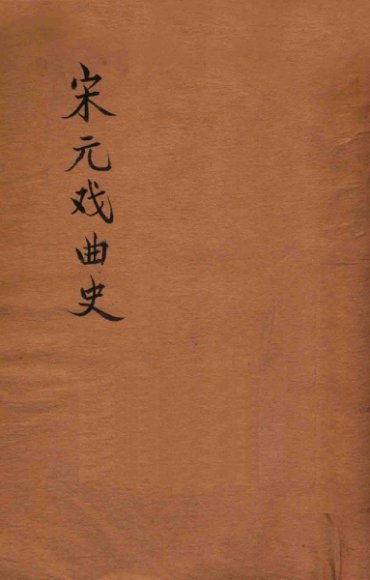 宋元戏曲史